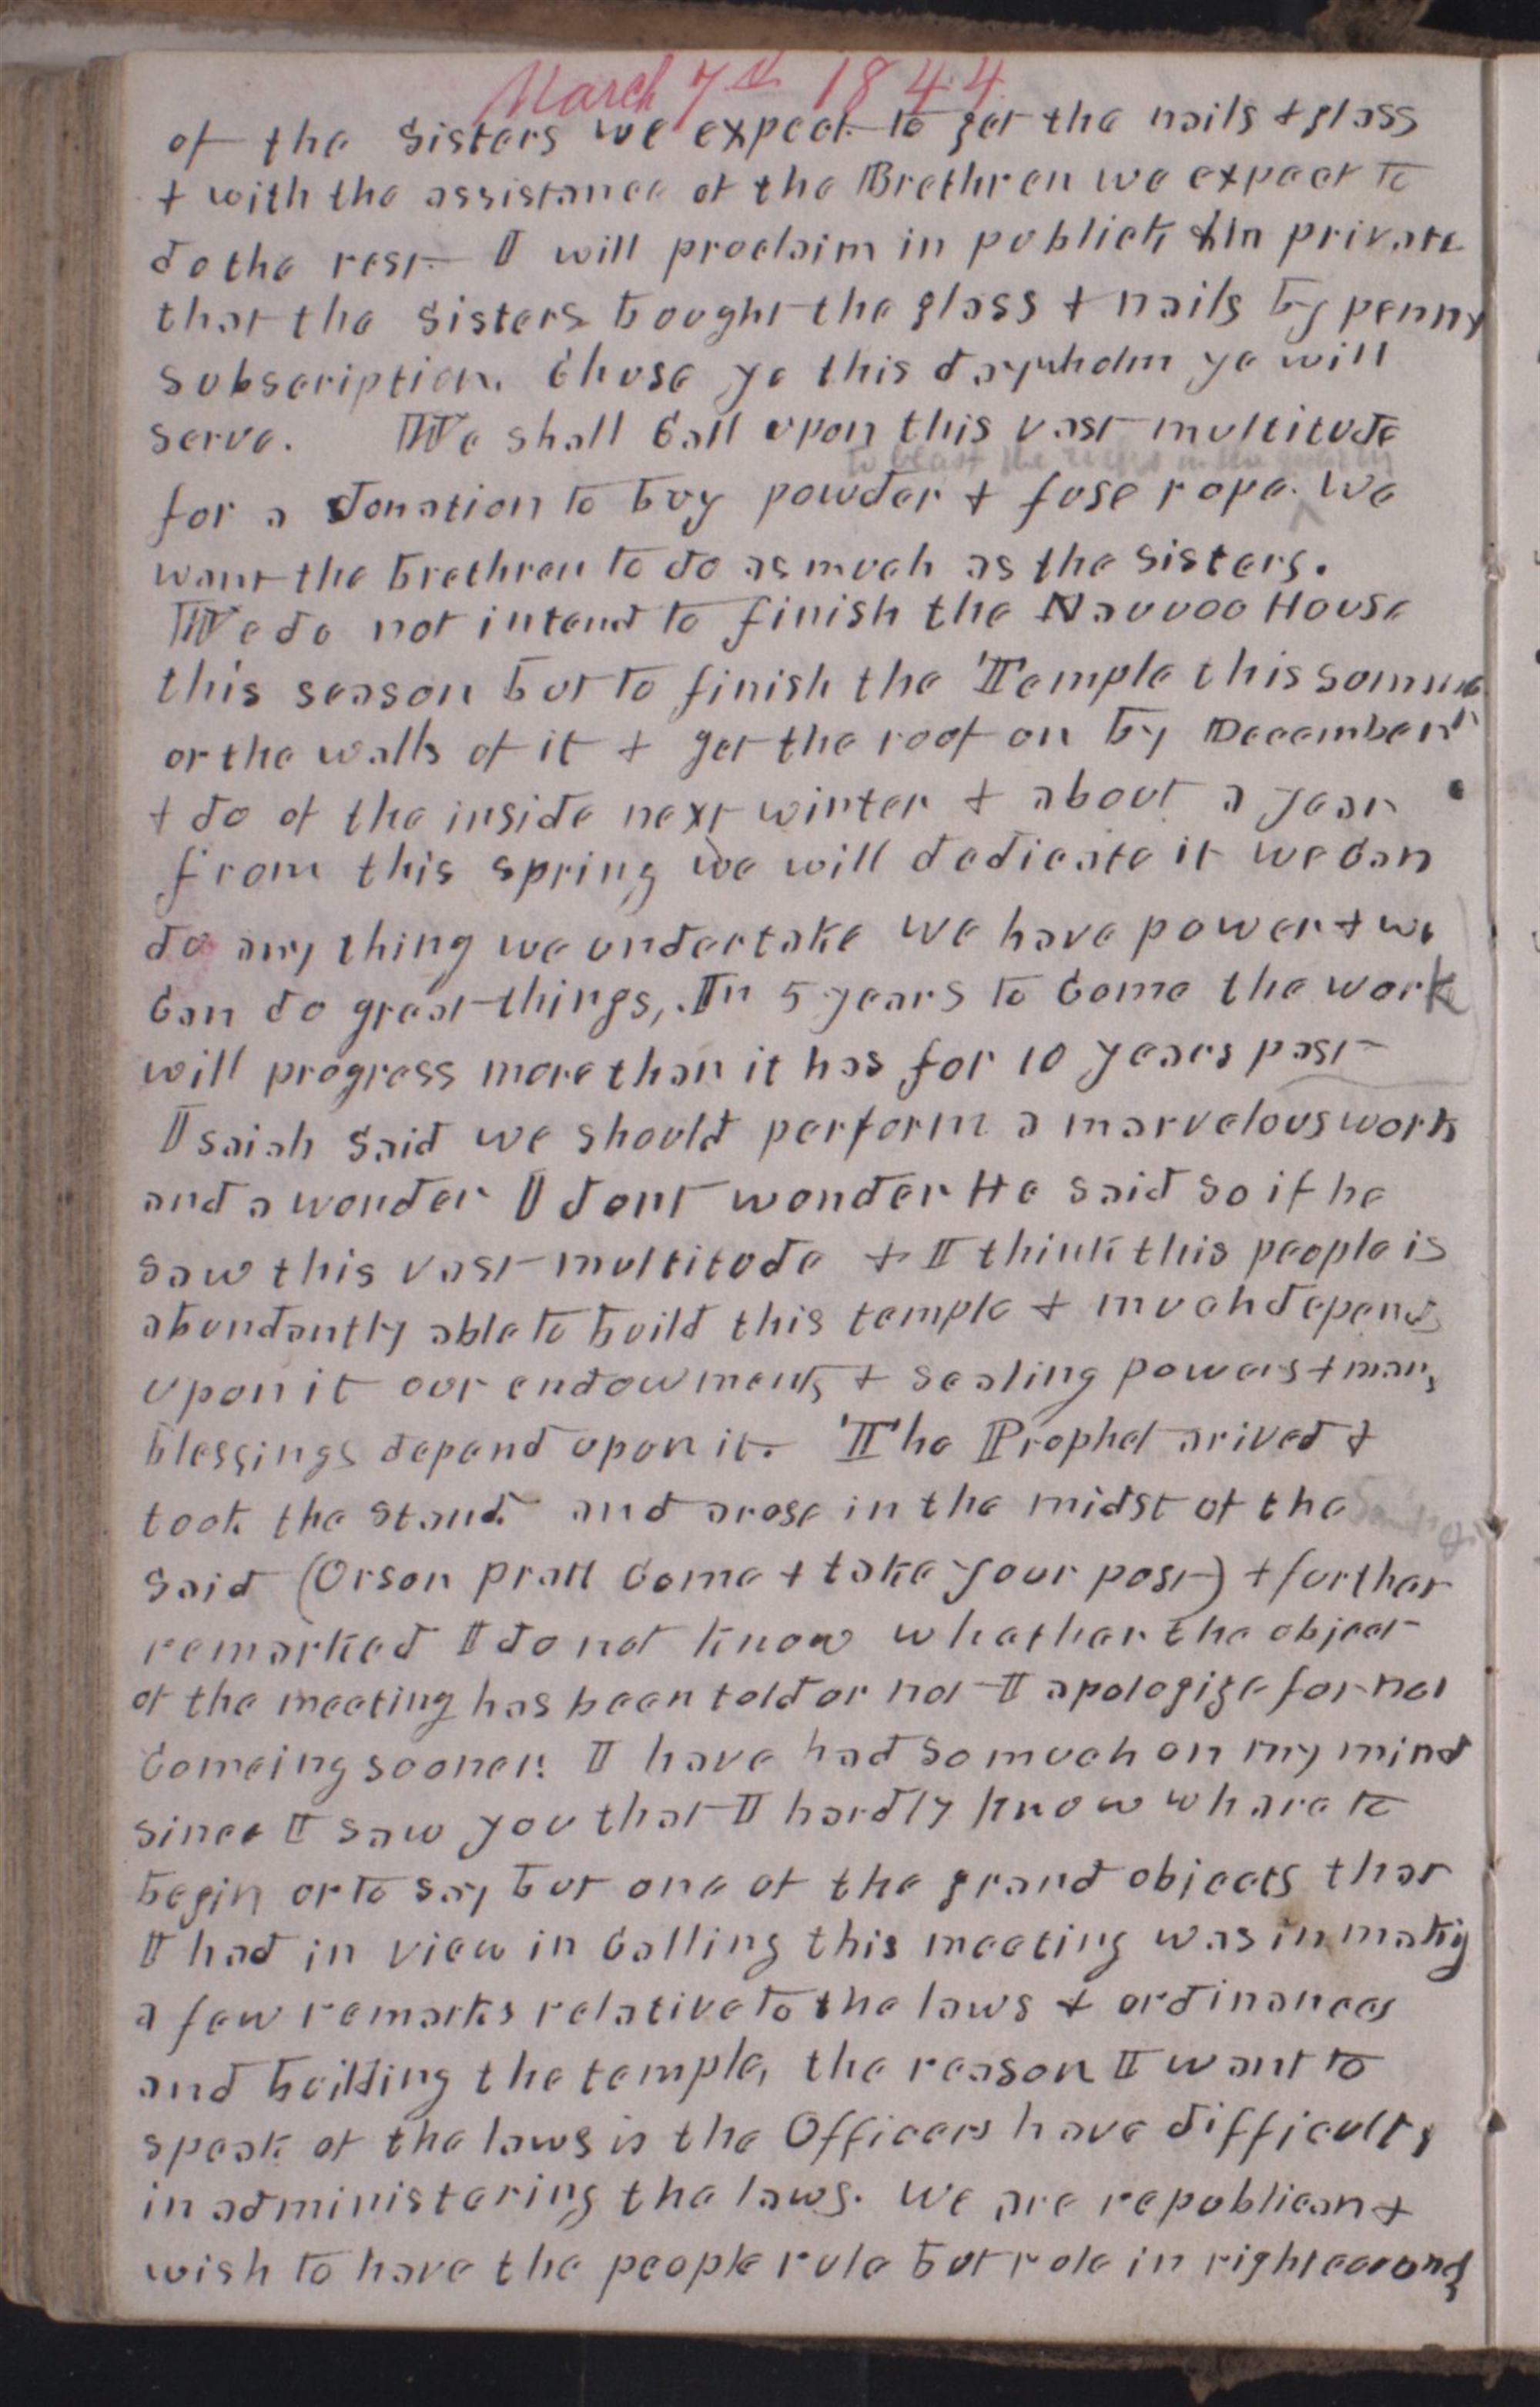 March 7th 1844
of the Sisters we expect to get the nails & glass
& with the assistance of the Brethren we expect to
do the rest I will proclaim in publick & in private
that the Sisters bought the glass & nails by penny
subscription. Chuse ye this day whom ye will
serve. We shall Call upon this vast multitude
to blast the rocks in the
for a donation to buy powder & fuse rope. We
want the brethren to do as much as the Sisters.
We do not intend to finish the Nauvoo House
this season but to finish the Temple this summer
or the walls of it & get the roof on by December
& do of the inside next winter & about a year
from this spring we will dedicate it we Can
do any thing we undertake we have power & we
Can do great things, In 5 years to Come the work
will progress more than it has for 10 years past
Isaiah Said we should perform a marvelous work
and a wonder I dont wonder He said so if he
saw this vast multitude & I think this people is
abundantly able to build this temple & much depends
upon it our endowments & sealing powers & many
blessings depend upon it. The Prophet arived &
took the stand and arose in the midst of the
said (Orson Pratt Come & take your post) & further
remarked I do not know whether the object
of the meeting has been told or not I apologize for not
Comeing sooner. I have had so much on my mind
since I saw you that I hardly know whare to
begin or to say but one of the grand objects that
I had in view in Calling this meeting was in makig
a few remarks relative to the laws & ordinances
and building the temple, the reason I want to
speak of the laws is the Officers have difficulty
in administering the laws. We are republican &
wish to have the people rule but rule in